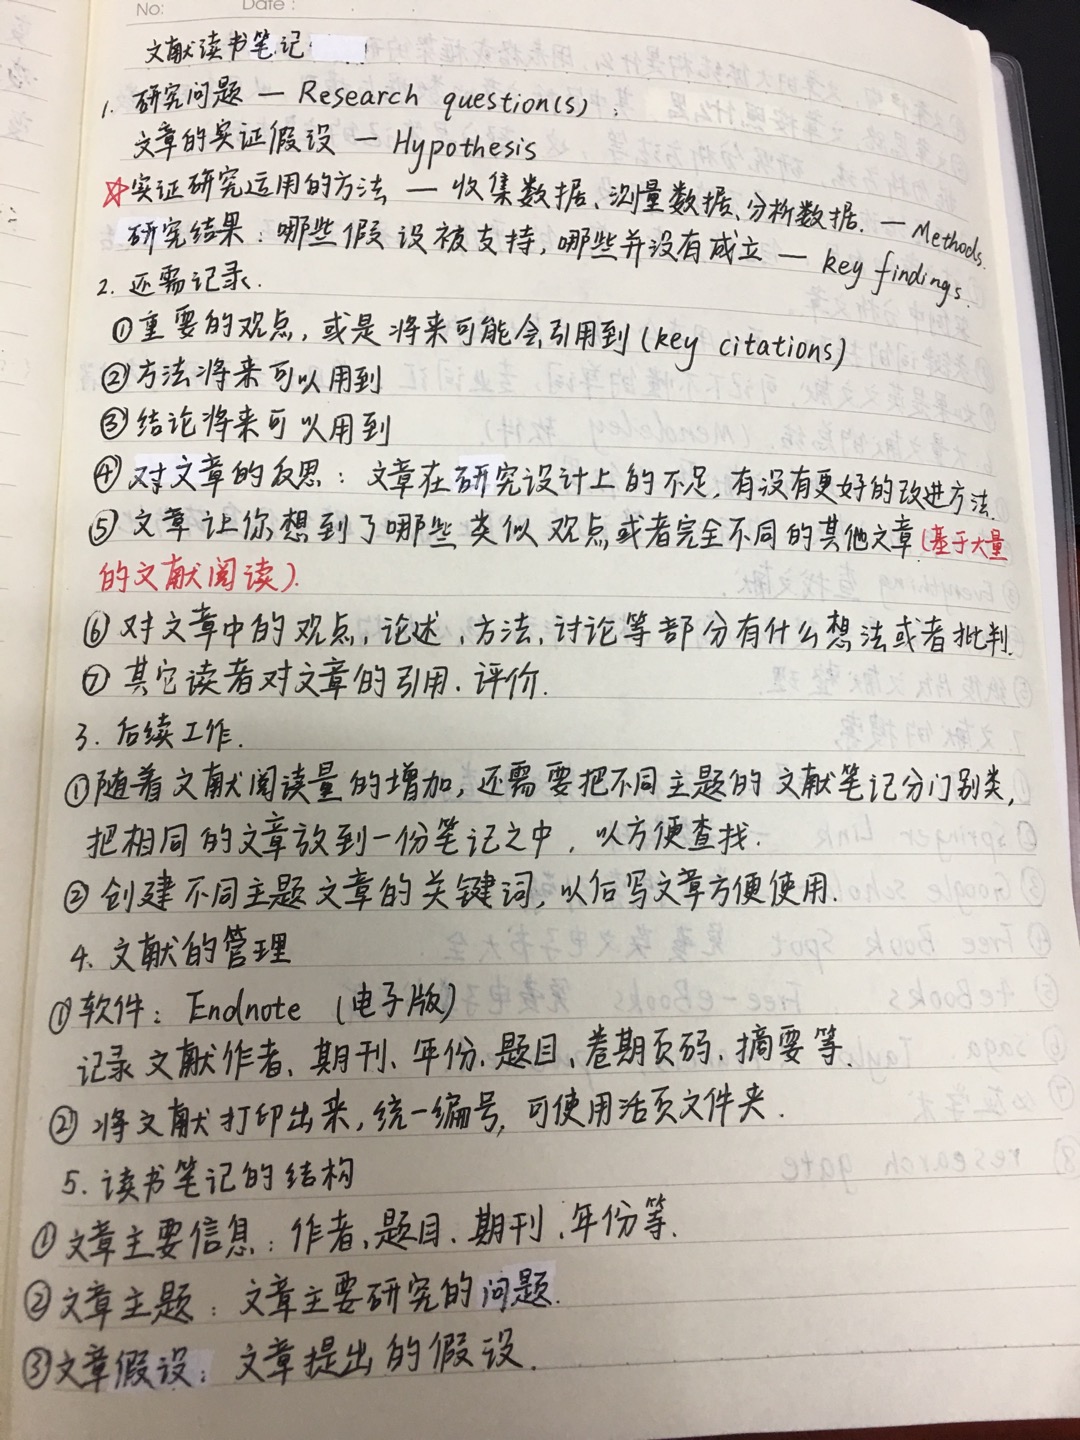 No:
Date:
文献读书笔记
1. 研究问题 — Research question(s);
文章的实证假设 — Hypothesis
☆实证研究运用的方法 — 收集数据、测量数据、分析数据. — Methods.
研究结果：哪些假设被支持，哪些并没有成立 — key findings.
2. 还需记录.
①重要的观点，或是将来可能会引用到(key citations)
②方法将来可以用到
③结论将来可以用到
④对文章的反思：文章在研究设计上的不足，有没有更好的改进方法.
⑤文章让你想到了哪些类似观点或者完全不同的其他文章(基于大量
的文献阅读).
⑥对文章中的观点，论述，方法，讨论等部分有什么想法或者批判.
⑦其它读者对文章的引用、评价.
3. 后续工作.
①随着文献阅读量的增加，还需要把不同主题的文献笔记分门别类，
把相同的文章放到一份笔记之中，以方便查找.
②创建不同主题文章的关键词，以后写文章方便使用.
4. 文献的管理
①软件：Endnote (电子版)
记录文献作者、期刊、年份、题目、卷期页码、摘要等.
②将文献打印出来，统一编号，可使用活页文件夹.
5. 读书笔记的结构
①文章主要信息：作者、题目、期刊、年份等.
②文章主题：文章主要研究的问题.
③文章假设：文章提出的假设.